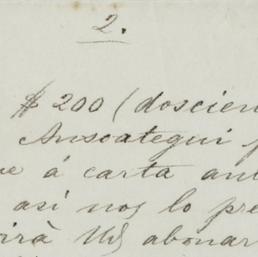 2.
$ 200 (doscien
Ansoategui
á carta
así nos lo pre
Uds abonar